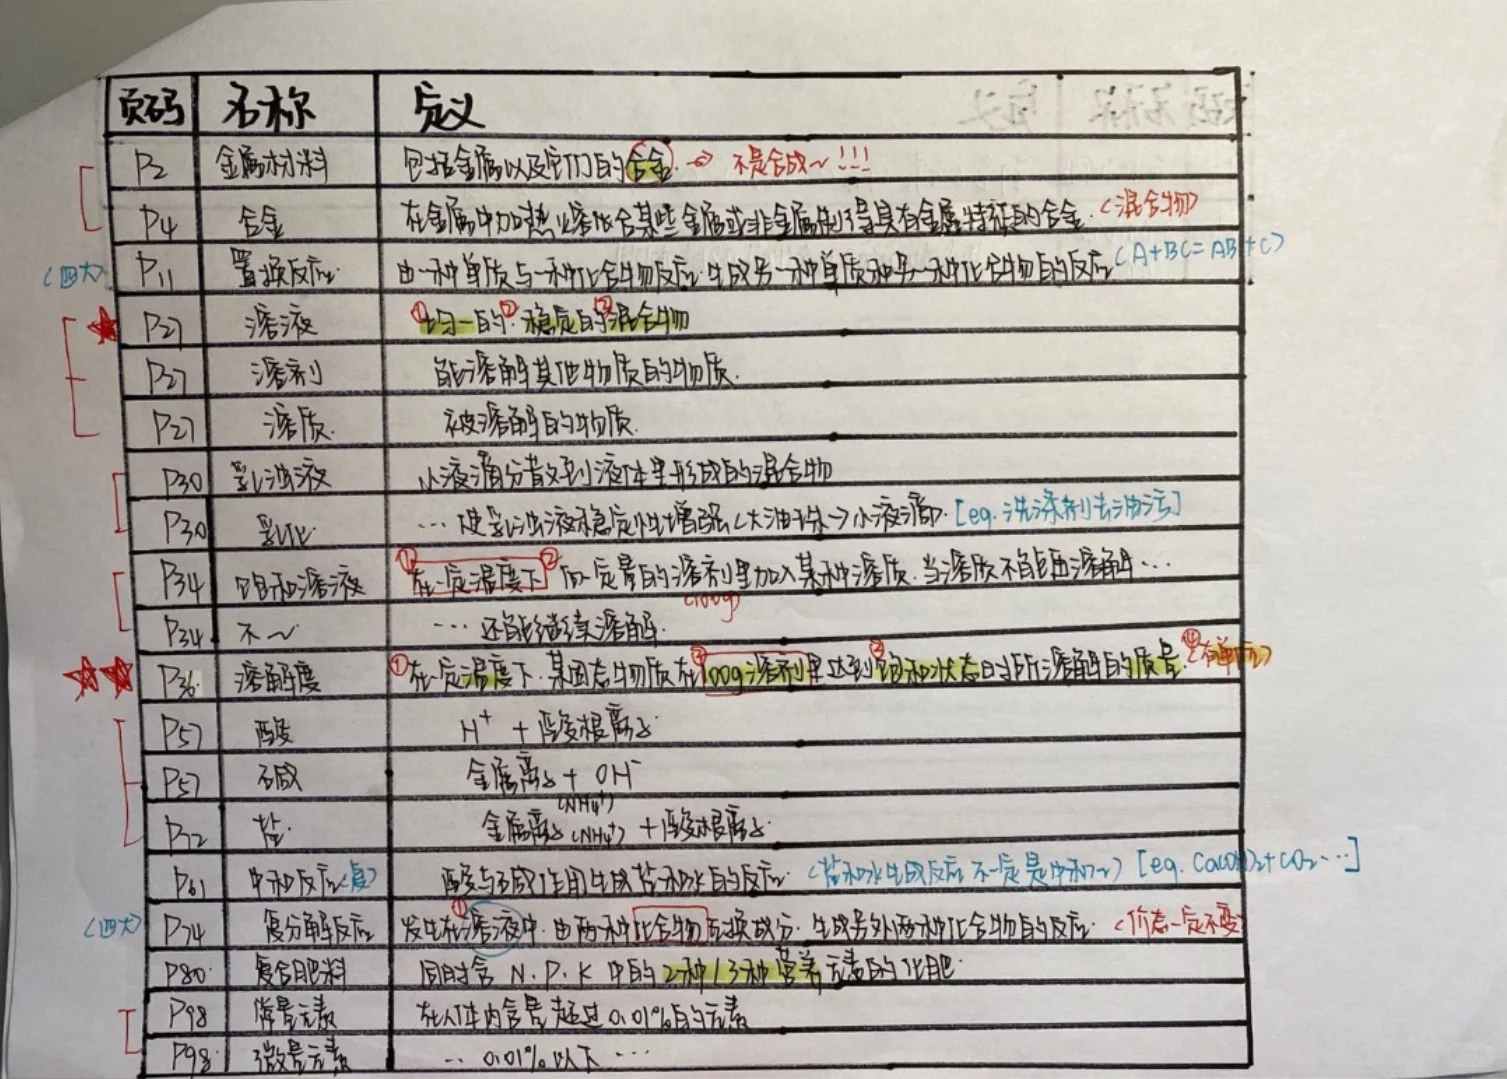 页码 名称 定义
P2 金属材料 包括金属以及它们的合金. → 不是合成~!!!
P4 合金 在金属中加热熔合某些金属或非金属制得具有金属特征的合金.(混合物)
(四大) P11 置换反应. 由一种单质与一种化合物反应.生成另一种单质和另一种化合物的反应(A+BC=AB+C)
P27 溶液 ①均一的.②稳定的③混合物
P27 溶剂 能溶解其他物质的物质.
P27 溶质. 被溶解的物质.
P30 乳浊液 小液滴分散到液体里形成的混合物
P30 乳化. …使乳浊液稳定性增强(大油珠→小液滴). [eg.洗涤剂去油污]
P34 饱和溶液 ①在一定温度下②向一定量的溶剂里加入某种溶质.当溶质不能再溶解…
(100g)
P34 不~ …还能继续溶解.
P36. 溶解度 ①在一定温度下.某固态物质在③100g溶剂里达到②饱和状态时所溶解的质量.④(有单位)
P57 酸 H⁺ + 酸根离子.
P57 碱 金属离子 + OH⁻
(NH₄⁺)
P72 盐. 金属离子(NH₄⁺) + 酸根离子.
P61 中和反应(复) 酸与碱作用生成盐和水的反应. (盐和水生成反应不一定是中和~) [eg. Ca(OH)₂+CO₂…]
(四大) P74 复分解反应 发生在①溶液中.由两种化合物互换成分.生成另外两种化合物的反应. (价态一定不变)
P80. 复合肥料 同时含 N.P.K 中的2种/3种营养元素的化肥.
P98 常量元素 在人体内含量超过0.01%的元素
P98. 微量元素 … 0.01%以下…